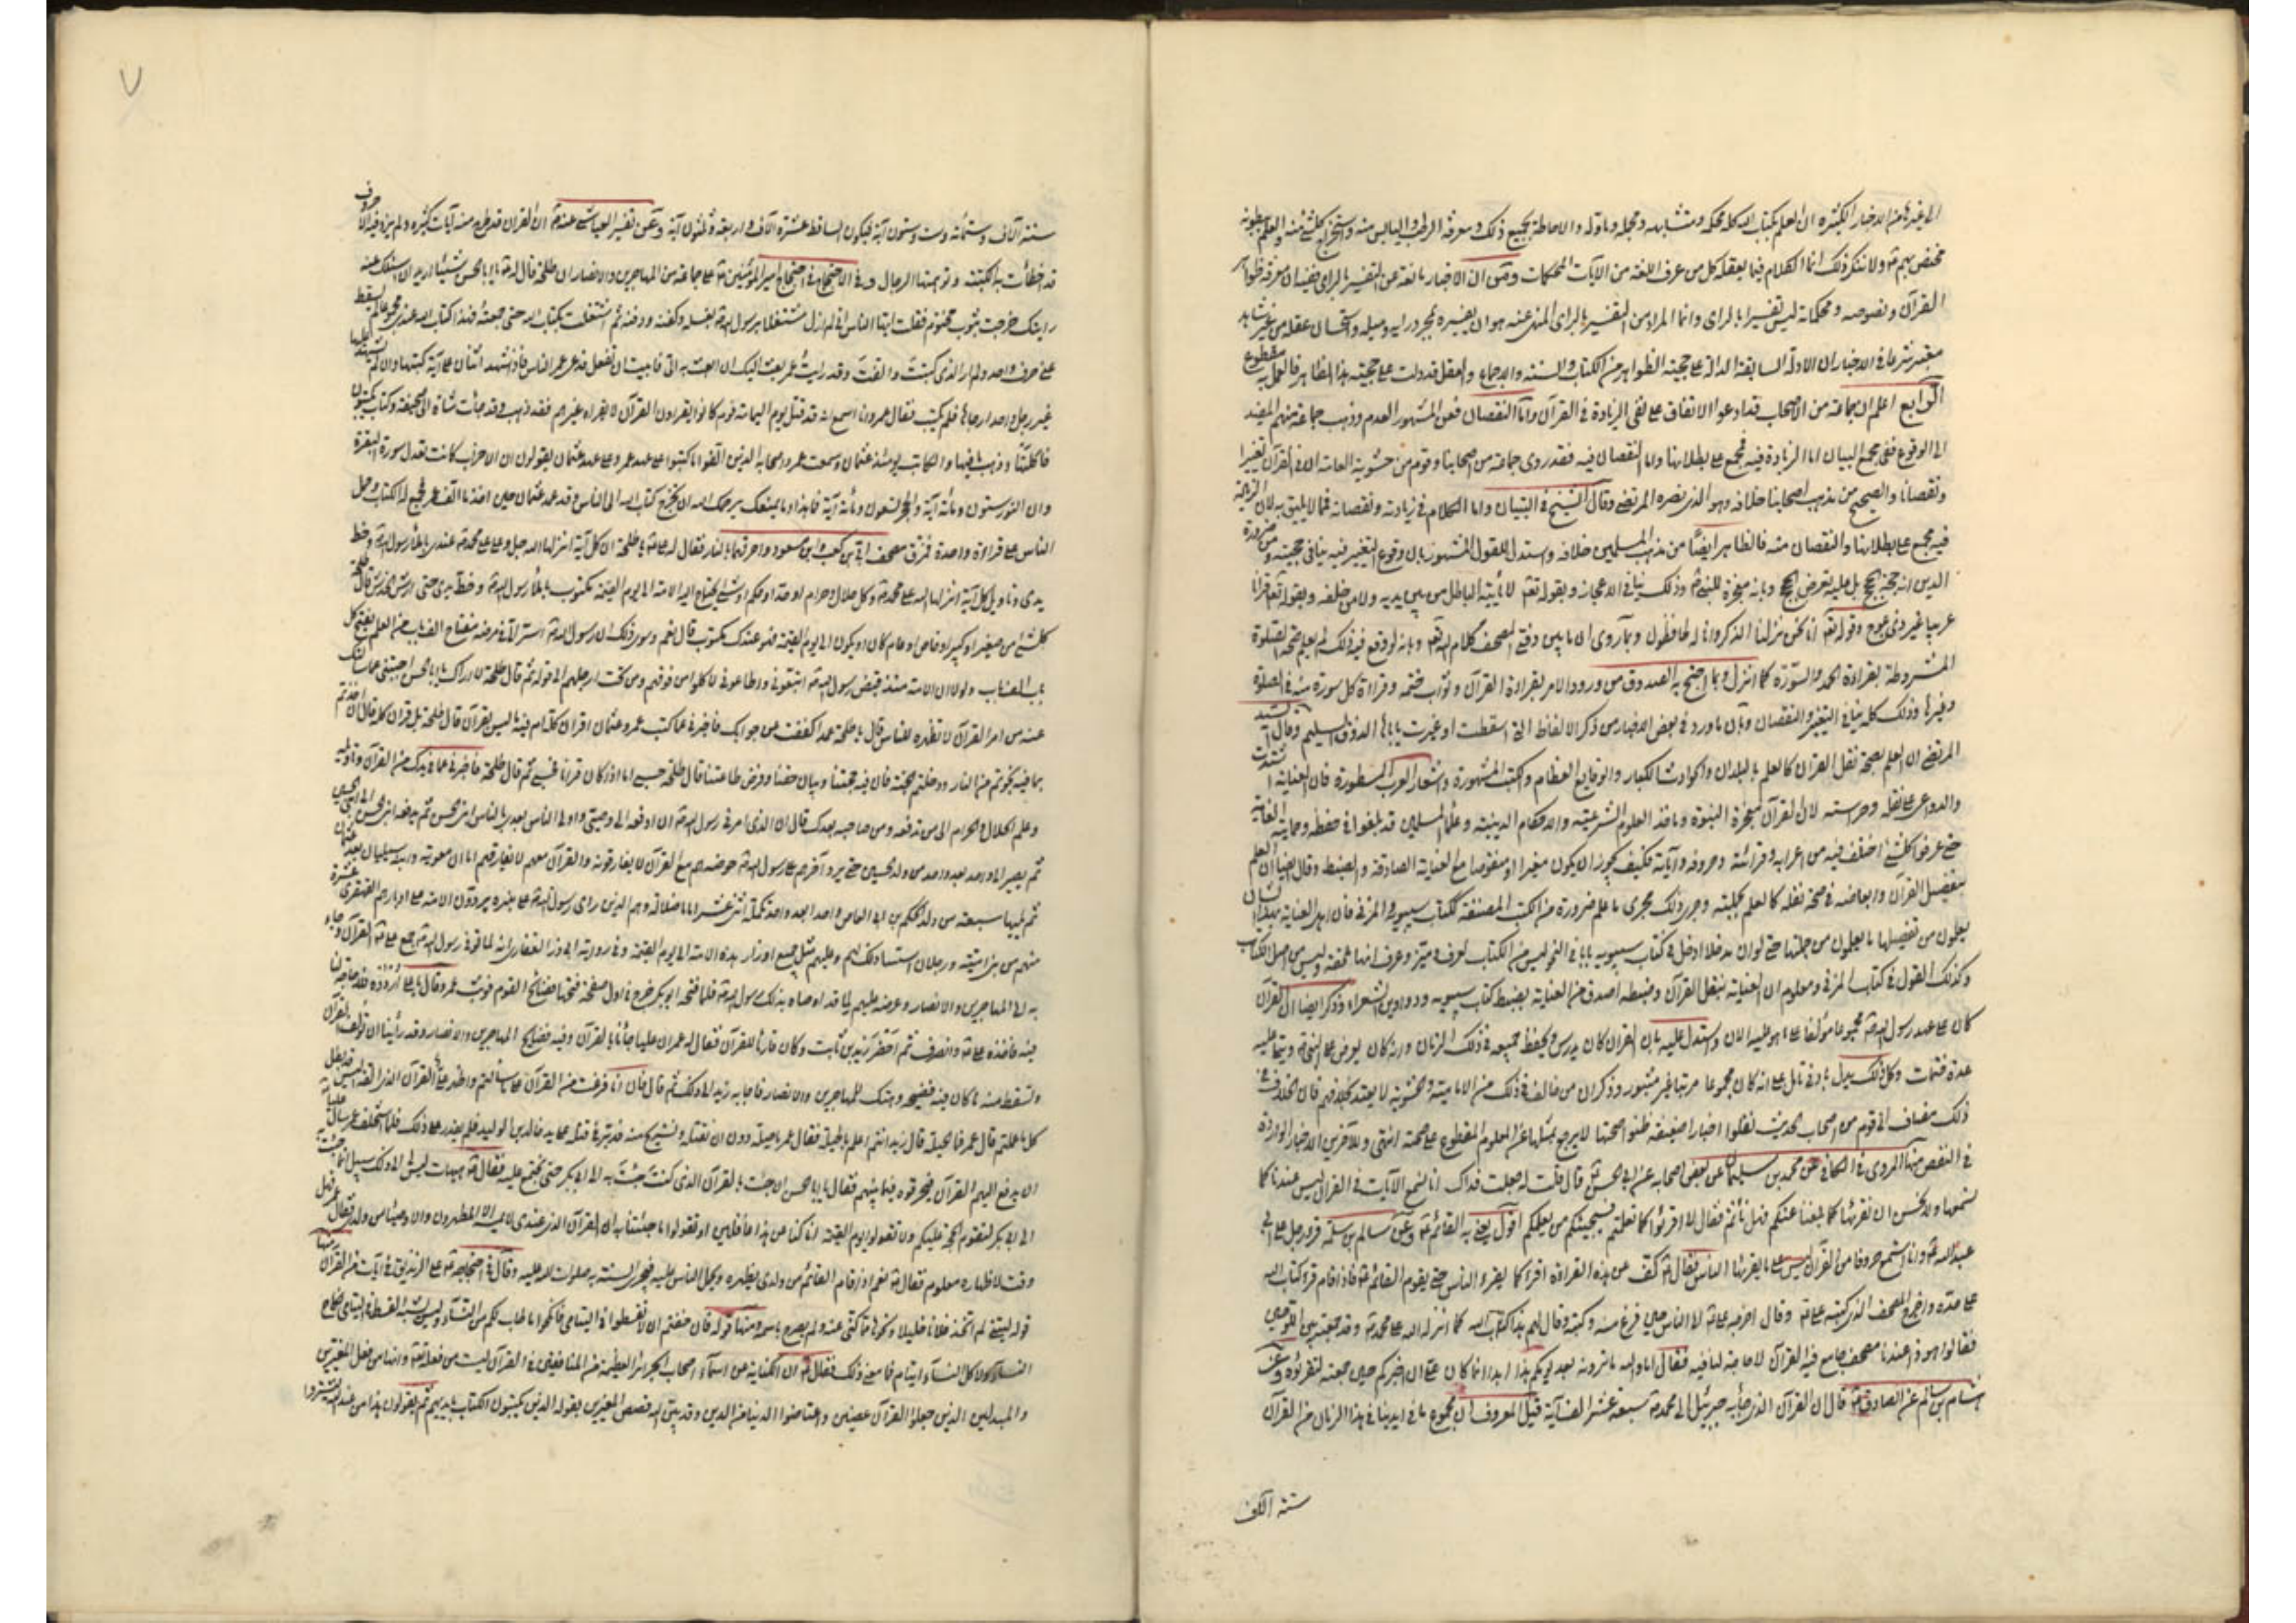 الى غيرها من الاخبار الكثيرة ان العلم بكتاب الله كله محكمه ومتشابهه ومجمله وماوله والاحاطة بجميع ذلك ومعرفة الرطب واليابس منه واستخراج كل شئ منه والعلم ببطونه
مختص بهم ع ولا ننكر ذلك انما الكلام فيما يعقله كل من عرف اللغة من الآيات المحكمات ومتى ان الاخبار مانعة عن التفسير بالراى فيه ان معرفة ظواهر
القرآن ونصوصه ومحكماته ليس تفسيرا بالراى وانما المراد من التفسير بالراى المنهى عنه هو ان يفسره بمجرد رايه وميله واستحسان عقله من غير شاهد
معتبر شرعا فى الاخبار ان الادلة السابقة الدالة على حجية الظواهر من الكتاب والسنة والاجماع والعقل قد دلت على حجية هذا الظاهر فالعمل به مقطوع
الرابع اعلم ان جماعة من الاصحاب قد ادعوا الاتفاق على نفى الزيادة فى القرآن واما النقصان فعن المشهور العدم وذهب جماعة منهم المفيد
الى الوقوع ففى مجمع البيان اما الزيادة فيه فمجمع على بطلانها واما النقصان فيه فقد روى جماعة من اصحابنا وقوم من حشوية العامة ان فى القرآن تغييرا
ونقصانا والصحيح من مذهب اصحابنا خلافه وهو الذى نصره المرتضى وقال الشيخ فى التبيان واما الكلام فى زيادته ونقصانه فمما لا يليق به لان الزيادة
فيه مجمع على بطلانها والنقصان منه فالظاهر ايضا من مذهب المسلمين خلافه واستدل للقول المشهور بان وقوع التغيير فيه ينافى حجيته ومن ضرورة
الدين انه حجة الحجج بل عليه تعرض الحجج وبانه معجزة للنبى ص وذلك ينافى الاعجاز وبقوله تعم لا يأتيه الباطل من بين يديه ولا من خلفه وبقوله تعم قرآنا
عربيا غير ذى عوج وقوله تعم انا نحن نزلنا الذكر وانا له لحافظون وبما روى ان ما بين دفتى المصحف كلام الله تعم وبانه لو وقع فيه ذلك لم يعلم صحة الصلوة
المشروطة بقراءة الحمد والسورة كما انزل وبما احتج به الصدوق من ورود الامر بقراءة القرآن وثواب ختمه وقراءة كل سورة منه فى الصلوة
وغيرها وذلك كله ينافى التغيير والنقصان وبان ما ورد فى بعض الاخبار من ذكر الالفاظ التى اسقطت او غيرت ياباها الذوق السليم وقال السيد
المرتضى ان العلم بصحة نقل القرآن كالعلم بالبلدان والحوادث الكبار والوقايع العظام والكتب المشهورة واشعار العرب المسطورة فان العناية اشتدت
والدواعى على نقله وحراسته لان القرآن معجزة النبوة وماخذ العلوم الشرعية والاحكام الدينية وعلماء المسلمين قد بلغوا فى حفظه وحمايته الغاية
حتى عرفوا كل شئ اختلف فيه من اعرابه وقرائته وحروفه وآياته فكيف يجوز ان يكون مغيرا او منقوصا مع العناية الصادقة والضبط وقال ايضا ان العلم
بتفصيل القرآن وابعاضه فى صحة نقله كالعلم بجملته وجرى ذلك مجرى ما علم ضرورة من الكتب المصنفة ككتاب سيبويه والمزنى فان اهل العناية بهذا الشان
يعلمون من تفصيلها ما يعلمون من جملتها حتى لو ان مدخلا ادخل فى كتاب سيبويه بابا فى النحو ليس من الكتاب لعرف وميز وعرف انه ملحق وليس من اصل الكتاب
وكذلك القول فى كتاب المزنى ومعلوم ان العناية بنقل القرآن وضبطه اصدق من العناية بضبط كتاب سيبويه ودواوين الشعراء وذكر ايضا ان القرآن
كان على عهد رسول الله ص مجموعا مؤلفا على ما هو عليه الان واستدل عليه بان القرآن كان يدرس ويحفظ جميعه فى ذلك الزمان وانه كان يعرض على النبى ص ويتلى عليه
عدة ختمات وكل ذلك يدل بادنى تامل على انه كان مجموعا مرتبا غير مبتور وذكر ان من خالف فى ذلك من الامامية والحشوية لا يعتد بخلافهم فان الخلاف فى
ذلك مضاف الى قوم من اصحاب الحديث نقلوا اخبارا ضعيفة ظنوا صحتها لا يرجع بمثلها عن المعلوم المقطوع على صحته انتهى وللآخرين الاخبار الواردة
فى النقص منها المروى فى الكافى عن محمد بن سليمان عن بعض اصحابه عن ابى الحسن ع قال قلت له جعلت فداك انا نسمع الآيات فى القرآن ليس عندنا كما
نسمعها ولا نحسن ان نقرئها كما بلغنا عنكم فهل ناثم فقال لا اقرؤا كما تعلمتم فسيجيئكم من يعلمكم اقول يعنى به القائم ع وعن سالم بن سلمة قرء رجل على ابى
عبد الله ع وانا استمع حروفا من القرآن ليس على ما يقرئها الناس فقال ع كف عن هذه القراءة اقرء كما يقرء الناس حتى يقوم القائم ع فاذا قام قرء كتاب الله
على حده واخرج المصحف الذى كتبه على ع وقال اخرجه على ع الى الناس حين فرغ منه وكتبه وقال لهم هذا كتاب الله كما انزله الله على محمد ص وقد جمعته بين اللوحين
فقالوا هو ذا عندنا مصحف جامع فيه القرآن لا حاجة لنا فيه فقال اما والله ما ترونه بعد يومكم هذا ابدا انما كان على ان اخبركم حين جمعته لتقرؤه وعن
هشام بن سالم عن الصادق ع قال ان القرآن الذى جاء به جبرئيل الى محمد ص سبعة عشر الف آية قيل المعروف ان مجموع ما فى ايدينا فى هذا الزمان من القرآن
ستة آلاف
٧
ستة آلاف وستمائة وست وستون آية فيكون الساقط عشرة آلاف واربعة وثلثون آية وعن تفسير العياشى عنه ع ان القرآن قد طرح منه آيات كثيرة ولم يزد فيه الا حروف
قد اخطأت به الكتبة وتوهمتها الرجال وفى الاحتجاج فى احتجاج امير المؤمنين ع على جماعة من المهاجرين والانصار ان طلحة قال له ع يا ابا الحسن شيئا اريد ان اسئلك عنه
رايتك خرجت بثوب مختوم فقلت ايها الناس انى لم ازل مشتغلا برسول الله ص بغسله وكفنه ودفنه ثم اشتغلت بكتاب الله حتى جمعته فهذا كتاب الله عندى مجموعا لم يسقط
عنى حرف واحد ولم ار الذى كتبت والفت وقد رايت عمر بعث اليك ان ابعث به الى فابيت ان تفعل فدعى عمر الناس فاذا شهد اثنان على آية كتبها وان لم يشهد عليها
غير رجل واحد ارجاها فلم يكتب فقال عمر وانا اسمع انه قد قتل يوم اليمامة قوم كانوا يقرؤن القرآن لا يقراه غيرهم فقد ذهب وقد جاءت شاة الى صحيفة وكتاب يكتبون
فاكلتها وذهب ما فيها والكاتب يومئذ عثمان وسمعت عمر واصحابه الذين الفوا ما كتبوا على عهد عمر وعلى عهد عثمان يقولون ان الاحزاب كانت تعدل سورة البقرة
وان النور ستون ومائة آية والحجر تسعون ومائة آية فما هذا وما يمنعك يرحمك الله ان تخرج كتاب الله الى الناس وقد عهد عثمان حين اخذ ما الف عمر فجمع له الكتاب وحمل
الناس على قراءة واحدة فمزق مصحف ابى بن كعب وابن مسعود واحرقهما بالنار فقال له على ع يا طلحة ان كل آية انزلها الله جل وعلا على محمد ص عندى باملاء رسول الله ص وخط
يدى وتاويل كل آية انزلها الله على محمد ص وكل حلال وحرام او حد او حكم او شئ يحتاج اليه الامة الى يوم القيمة مكتوب باملاء رسول الله ص وخط يدى حتى ارش الخدش قال طلحة
كل شئ من صغير او كبير او خاص او عام كان او يكون الى يوم القيمة فهو عندك مكتوب قال نعم وسوى ذلك ان رسول الله ص اسر الى فى مرضه مفتاح الف باب من العلم يفتح كل
باب الف باب ولو ان الامة منذ قبض رسول الله ص اتبعونى واطاعونى لاكلوا من فوقهم ومن تحت ارجلهم الى قوله ثم قال طلحة لا اراك يا ابا الحسن اجبتنى عما سالتك
عنه من امر القرآن الا تظهره للناس قال يا طلحة عمدا كففت عن جوابك فاخبرنى عما كتب عمر وعثمان اقرآن كله ام فيه ما ليس بقرآن قال طلحة بل قرآن كله قال ان اخذتم
بما فيه نجوتم من النار ودخلتم الجنة فان فيه حجتنا وبيان حقنا وفرض طاعتنا قال طلحة حسبى اما اذا كان قرآنا فحسبى ثم قال طلحة فاخبرنى عما فى يدك من القرآن وتاويله
وعلم الحلال والحرام الى من تدفعه ومن صاحبه بعدك قال ان الذى امرنى رسول الله ص ان ادفعه الى وصيى واولى الناس بعدى بالناس ابنى الحسن ثم يدفعه ابنى الحسن الى ابنى الحسين
ثم يصير الى واحد بعد واحد من ولد الحسين حتى يرد آخرهم على رسول الله ص حوضه هم مع القرآن لا يفارقونه والقرآن معهم لا يفارقهم اما ان معوية وابنه سيليان بعد عثمان
ثم يليها سبعة من ولد الحكم بن ابى العاص واحدا بعد واحد تكملة اثنى عشر امام ضلالة وهم الذين راى رسول الله ص على منبره يردون الامة على ادبارهم القهقرى عشرة
منهم من بنى امية ورجلان اسسا ذلك لهم وعليهم مثل جميع اوزار هذه الامة الى يوم القيمة وفى رواية ابى ذر الغفارى انه لما توفى رسول الله ص جمع على ع القرآن وجاء
به الى المهاجرين والانصار وعرضه عليهم لما قد اوصاه بذلك رسول الله ص فلما فتحه ابو بكر خرج فى اول صفحة فتحها فضايح القوم فوثب عمر وقال يا على اردده فلا حاجة لنا
فيه فاخذه على ع وانصرف ثم احضر زيد بن ثابت وكان قاريا للقرآن فقال له عمر ان عليا جاءنا بالقرآن وفيه فضايح المهاجرين والانصار وقد راينا ان تؤلف القرآن
وتسقط منه ما كان فيه فضيحة وهتك للمهاجرين والانصار فاجابه زيد الى ذلك ثم قال فان انا فرغت من القرآن على ما سالتم واظهر على القرآن الذى الفه اليس قد بطل
كل ما عملتم قال عمر فما الحيلة قال زيد انتم اعلم بالحيلة فقال عمر ما حيلة دون ان نقتله ونستريح منه فدبر فى قتله على يد خالد بن الوليد فلم يقدر على ذلك فلما استخلف عمر سال عليا
ان يدفع اليهم القرآن فيحرفوه فيما بينهم فقال يا ابا الحسن ان جئت بالقرآن الذى كنت جئت به الى ابى بكر حتى نجتمع عليه فقال ع هيهات ليس الى ذلك سبيل انما جئت به
الى ابى بكر لتقوم الحجة عليكم ولا تقولوا يوم القيمة انا كنا عن هذا غافلين او تقولوا ما جئتنا به ان القرآن الذى عندى لا يمسه الا المطهرون والاوصياء من ولدى فقال عمر فهل
وقت لاظهاره معلوم فقال ع نعم اذا قام القائم من ولدى يظهره ويحمل الناس عليه فتجرى السنة به صلوات الله عليه وقال فى احتجاجه ع على الزنديق فى آيات من القرآن منها
قوله ليتنى لم اتخذ فلانا خليلا
النساء ولا كل النساء ايتام فما معنى ذلك فقال ع ان الكناية عن اسماء اصحاب الجرائر العظيمة من المنافقين فى القرآن ليست من فعله تعم وانها من فعل المغيرين
والمبدلين الذين جعلوا القرآن عضين واعتاضوا الدنيا من الدين وقد بين الله قصص المغيرين بقوله الذين يكتبون الكتاب بايديهم ثم يقولون هذا من عند الله ليشتروا